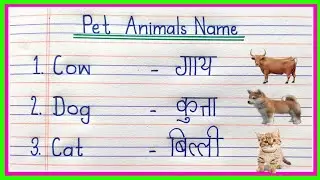 Pet Animals Name
1. Cow - गाय
2. Dog - कुत्ता
3. Cat - बिल्ली